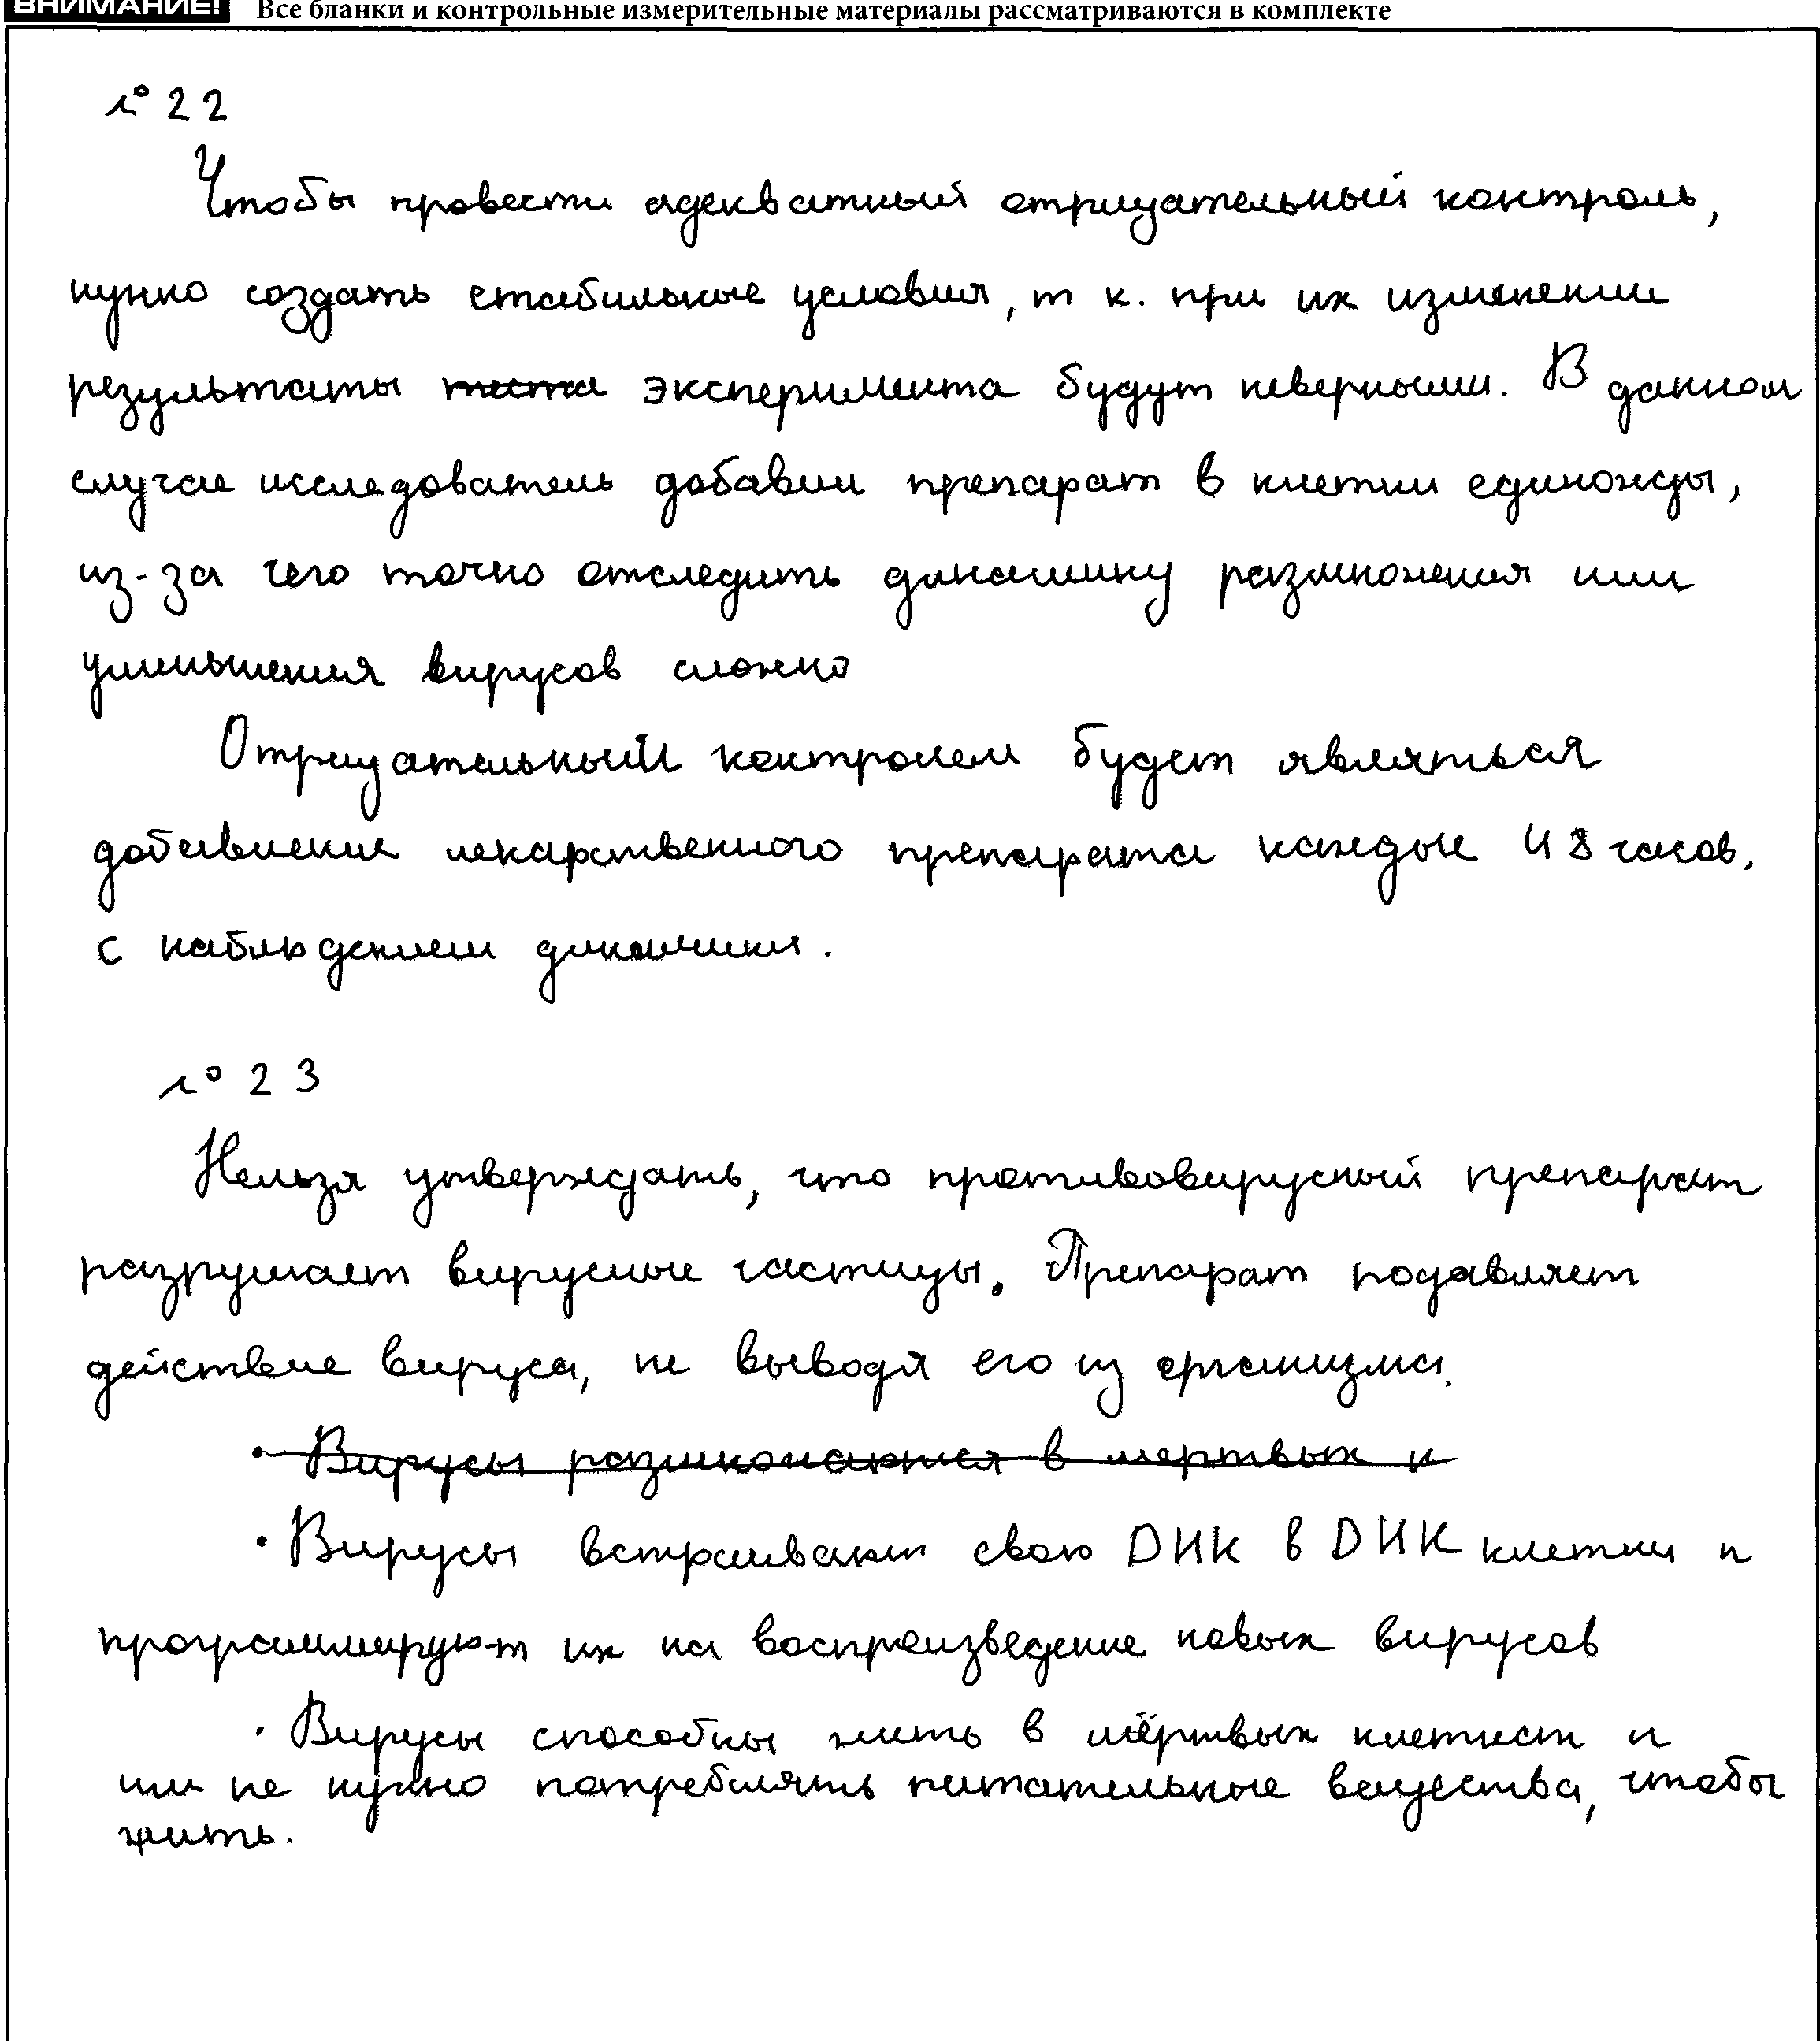 ВНИМАНИЕ! Все бланки и контрольные измерительные материалы рассматриваются в комплекте
№ 22
Чтобы провести адекватный отрицательный контроль,
нужно создать стабильные условия, т к. при их изменении
результаты теста эксперимента будут неверными. В данном
случае исследователь добавил препарат в клетки единожды,
из-за чего точно отследить динамику размножения или
уменьшения вирусов сложно
Отрицательный контролем будет являться
добавление лекарственного препарата каждые 48 часов,
с наблюдением динамики.
№ 23
Нельзя утверждать, что противовирусный препарат
разрушает вирусные частицы. Препарат подавляет
действие вируса, не выводя его из организма.
· Вирусы размножаются в мертвых к
· Вирусы встраивают свою ДНК в ДНК клетки и
программируют их на воспроизведение новых вирусов
· Вирусы способны жить в мёртвых клетках и
им не нужно потреблять питательные вещества, чтобы
жить.